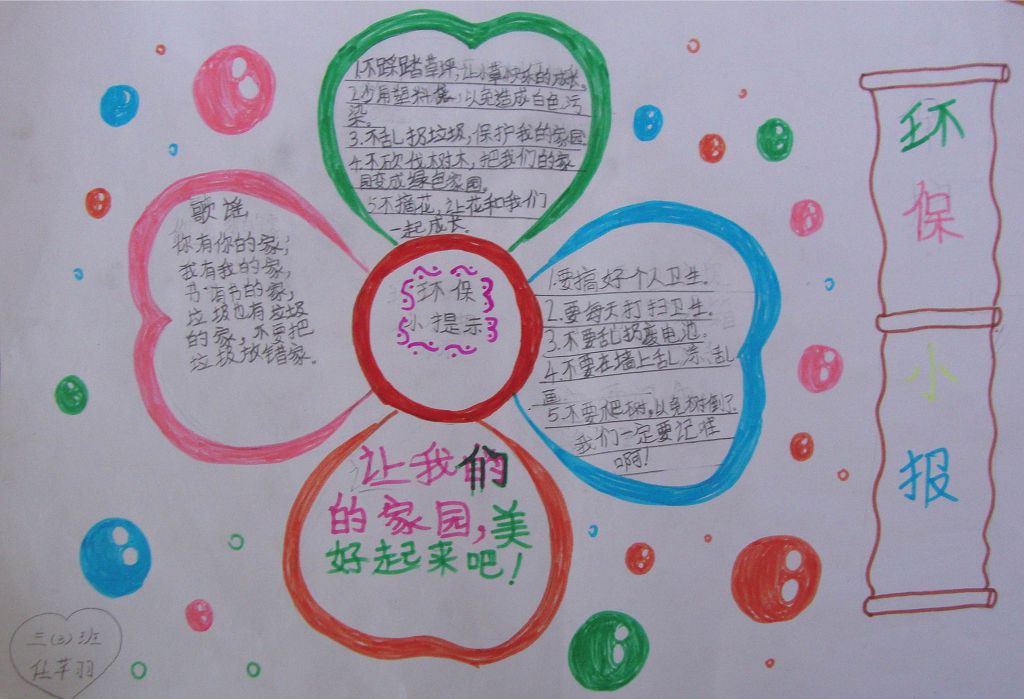 环保小报
1.不踩踏草坪,让小草快乐的成长。
2.少用塑料袋,以免造成白色污
染。
3.不乱扔垃圾,保护我的家园。
4.不砍伐树木,把我们的家
园变成绿色家园。
5不摘花,让花和我们
一起成长。
歌谣
你有你的家;
我有我的家,
书有书的家,
垃圾也有垃圾
的家,不要把
垃圾放错家。
环保
小提示
1.要搞好个人卫生。
2.要每天打扫卫生。
3.不要乱扔废电池。
4.不要在墙上乱涂乱
画
5.不要爬树,以免树倒了
我们一定要记准
啊!
让我们
的家园,美
好起来吧!
三(3)班